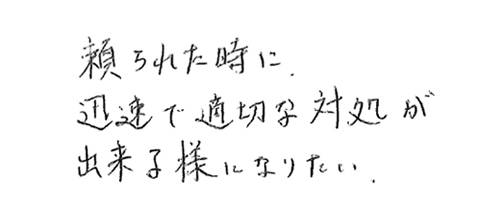 頼られた時に.
迅速で適切な対処が
出来る様になりたい.